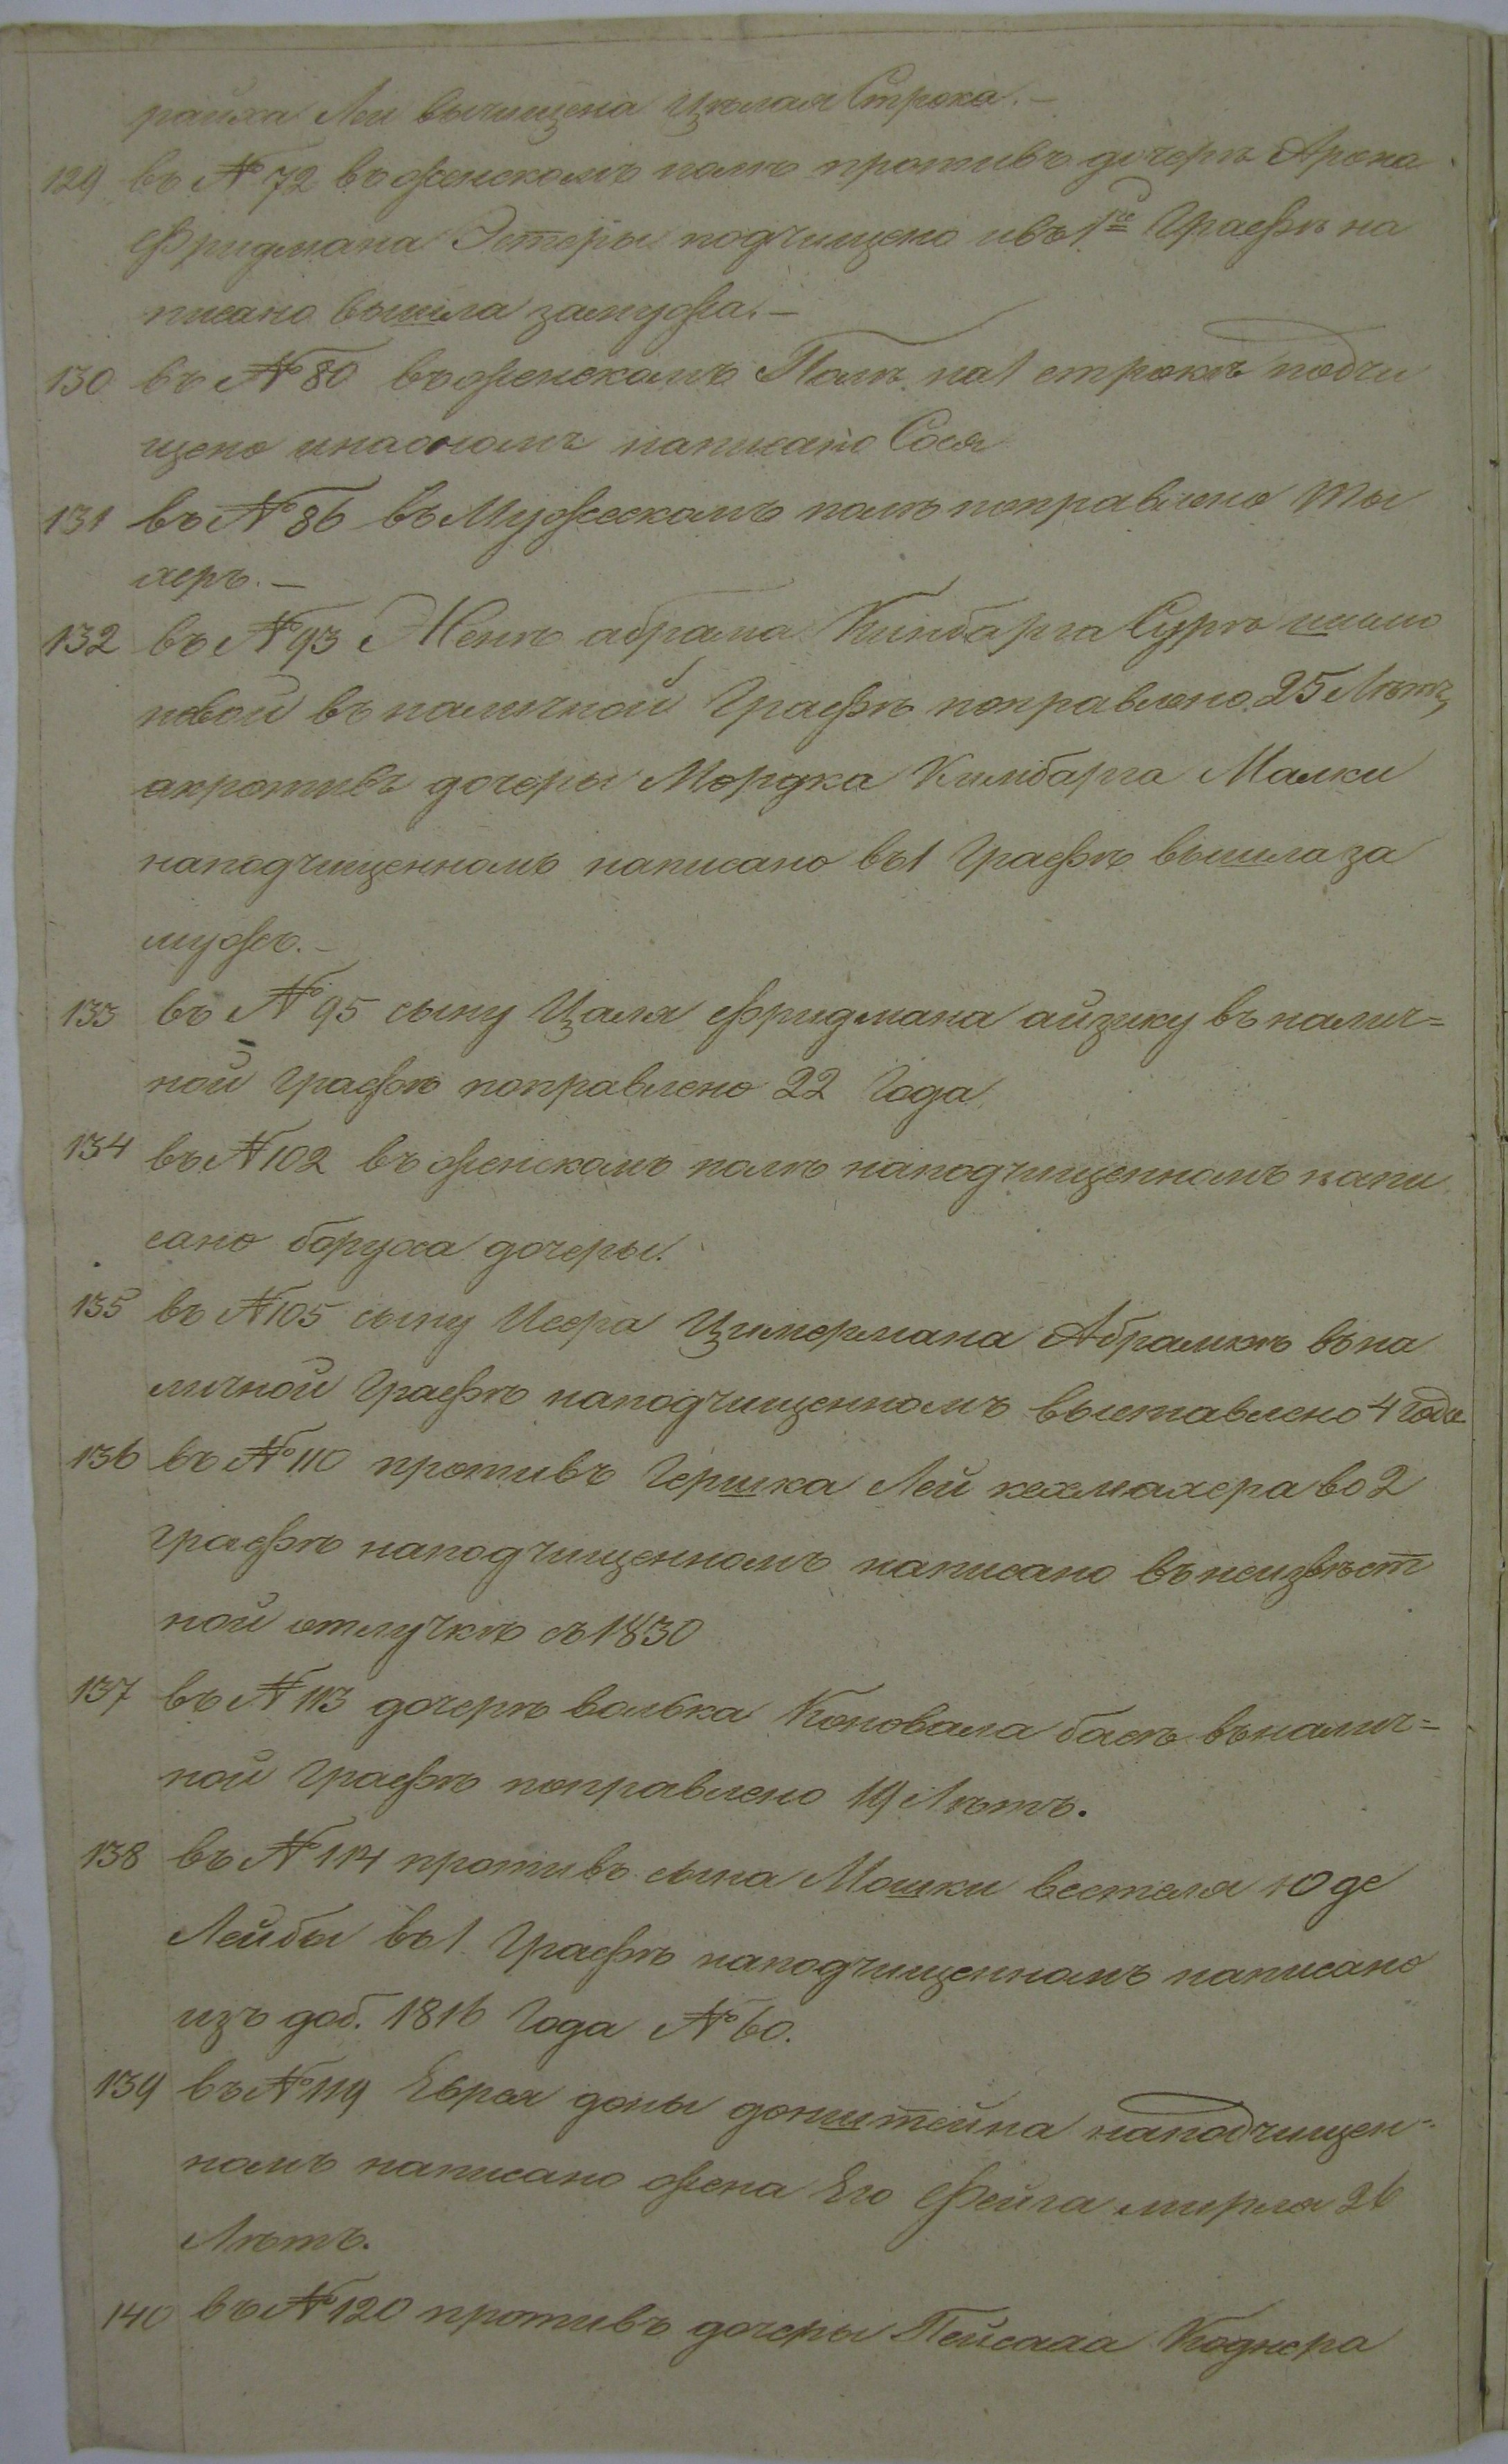 райха Леи вычищена цѣлая Строка. —
129 въ № 72 въ женскомъ полѣ противъ дочерѣ Арона
Фридмана Эстеры подчищено и въ 1й Графѣ на
писано вышла замужа. —
130 въ № 80 въ женскомъ Полѣ на 1 строкѣ подчи
щено и на ономъ написано Сося
131 въ № 86 въ Мужескомъ полѣ поправлено мы
херъ. —
132 въ № 93 Женѣ абрама Кинбарга Сурѣ
новой въ наличной Графѣ поправлено 25 Лѣтъ,
апротивъ дочеры Мордка Кимбарга Малки
на подчищенномъ написано въ 1 Графѣ вышла за
мужъ. —
133 въ № 95 сыну Цаля Фридмана айзику въ налич=
ной Графѣ поправлено 22 Года
134 въ № 102 въ женскомъ полѣ на подчищенномъ напи
сано боруха дочеры.
135 въ № 105 сыну Исера Цимермана Абрамкѣ въ на
личной Графѣ на подчищенномъ выставлено 4 Года
136 въ № 110 противъ Гершка Лей кехмахера во 2
графѣ на подчищенномъ написано въ неизвѣст
ной отлучкѣ съ 1830
137 въ № 113 дочерѣ волька Коновала басѣ въ налич=
ной Графѣ поправлено 19 Лѣтъ.
138 въ № 114 противъ сына Мошки вестеля Юде
Лейбы въ 1 Графѣ на подчищенномъ написано
изъ доб. 1816 Года № 60.
139 въ № 119 Еврея доны донштейна на подчищен=
номъ написано жена Его Фейга мирля 26
Лѣтъ.
140 въ № 120 противъ дочеры Пейсаха Коднера